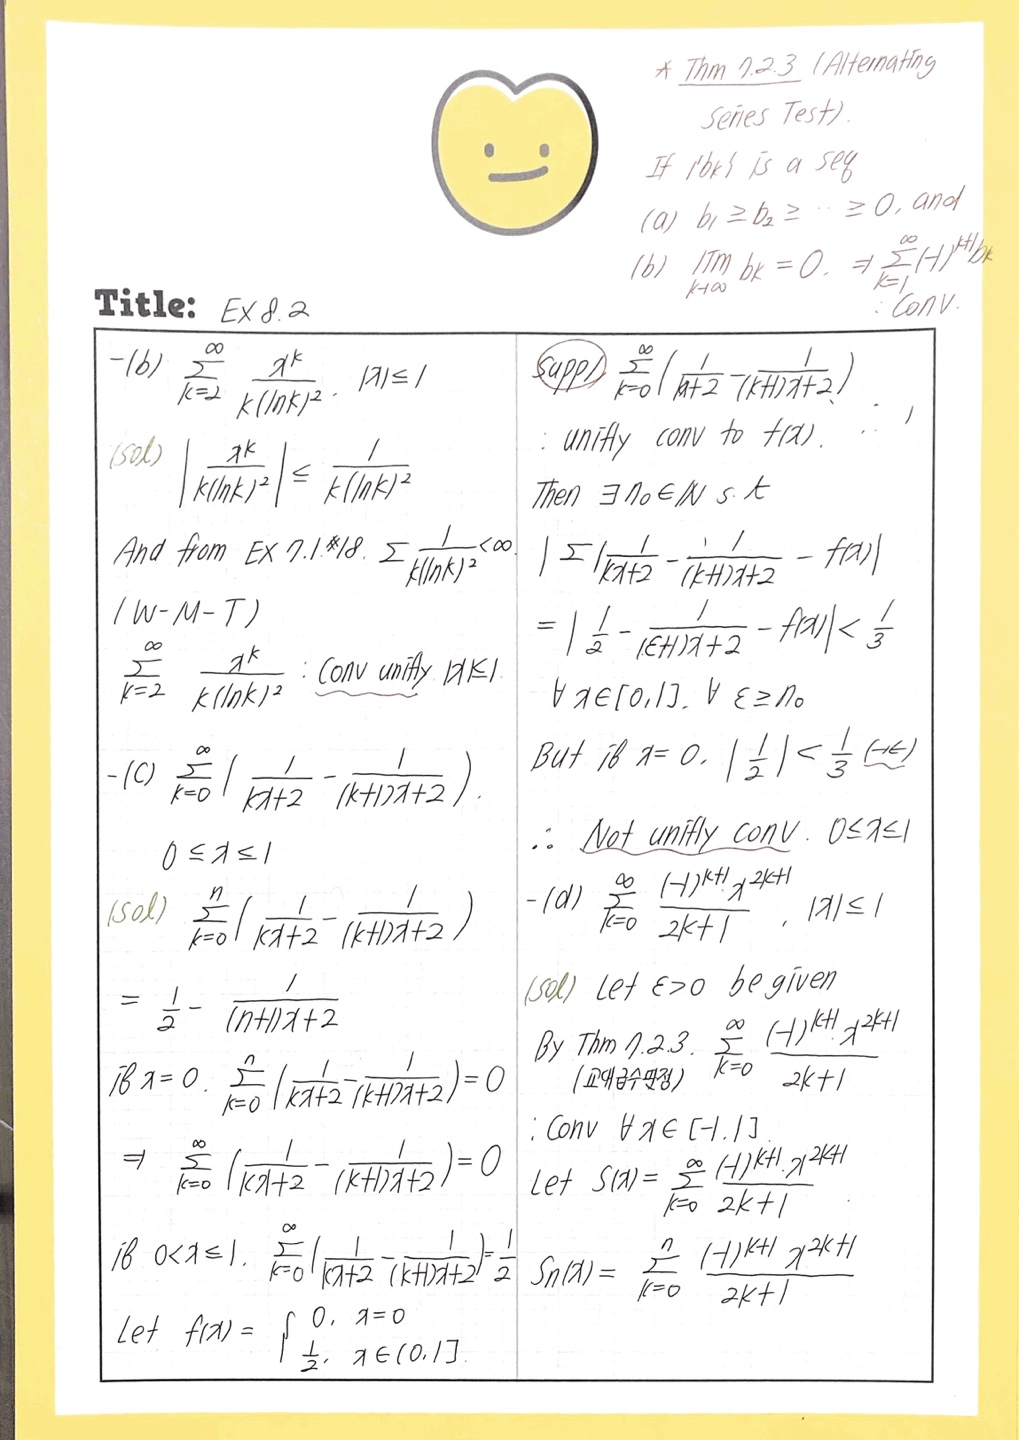 * Thm 7.2.3 (Alternating
Series Test).
If {bk} is a seq
(a) b₁ ≥ b₂ ≥ ⋯ ≥ 0, and
(b) lim_{k→∞} bk = 0. ⇒ Σ_{k=1}^{∞} (-1)^{k+1} bk
: Conv.
Title: EX 8.2
-(b) Σ_{k=2}^{∞} x^k / k(lnk)², |x| ≤ 1
(sol) | x^k / k(lnk)² | ≤ 1 / k(lnk)²
And from EX 7.1.#18. Σ 1 / k(lnk)² < ∞.
(W-M-T)
Σ_{k=2}^{∞} x^k / k(lnk)² : Conv unifly |x|≤1.
-(c) Σ_{k=0}^{∞} ( 1/(kx+2) - 1/((k+1)x+2) ).
0 ≤ x ≤ 1
(sol) Σ_{k=0}^{n} ( 1/(kx+2) - 1/((k+1)x+2) )
= 1/2 - 1/((n+1)x+2)
if x=0. Σ_{k=0}^{n} ( 1/(kx+2) - 1/((k+1)x+2) ) = 0
⇒ Σ_{k=0}^{∞} ( 1/(kx+2) - 1/((k+1)x+2) ) = 0
if 0<x≤1. Σ_{k=0}^{∞} ( 1/(kx+2) - 1/((k+1)x+2) ) = 1/2
Let f(x) = { 0, x=0
1/2, x∈(0,1].
Supp) Σ_{k=0}^{∞} ( 1/(kx+2) - 1/((k+1)x+2) )
: unifly conv to f(x).
Then ∃ n₀ ∈ ℕ s.t
| Σ ( 1/(kx+2) - 1/((k+1)x+2) - f(x) |
= | 1/2 - 1/((ε+1)x+2) - f(x) | < 1/3
∀ x∈[0,1]. ∀ ε ≥ n₀
But if x=0. | 1/2 | < 1/3 (→←)
∴ Not unifly conv. 0≤x≤1
-(d) Σ_{k=0}^{∞} (-1)^{k+1} x^{2k+1} / 2k+1, |x| ≤ 1
(sol) Let ε>0 be given
By Thm 7.2.3. Σ_{k=0}^{∞} (-1)^{k+1} · x^{2k+1} / 2k+1
(교대급수판정)
: Conv ∀ x ∈ [-1,1]
Let S(x) = Σ_{k=0}^{∞} (-1)^{k+1} · x^{2k+1} / 2k+1
Sn(x) = Σ_{k=0}^{n} (-1)^{k+1} x^{2k+1} / 2k+1